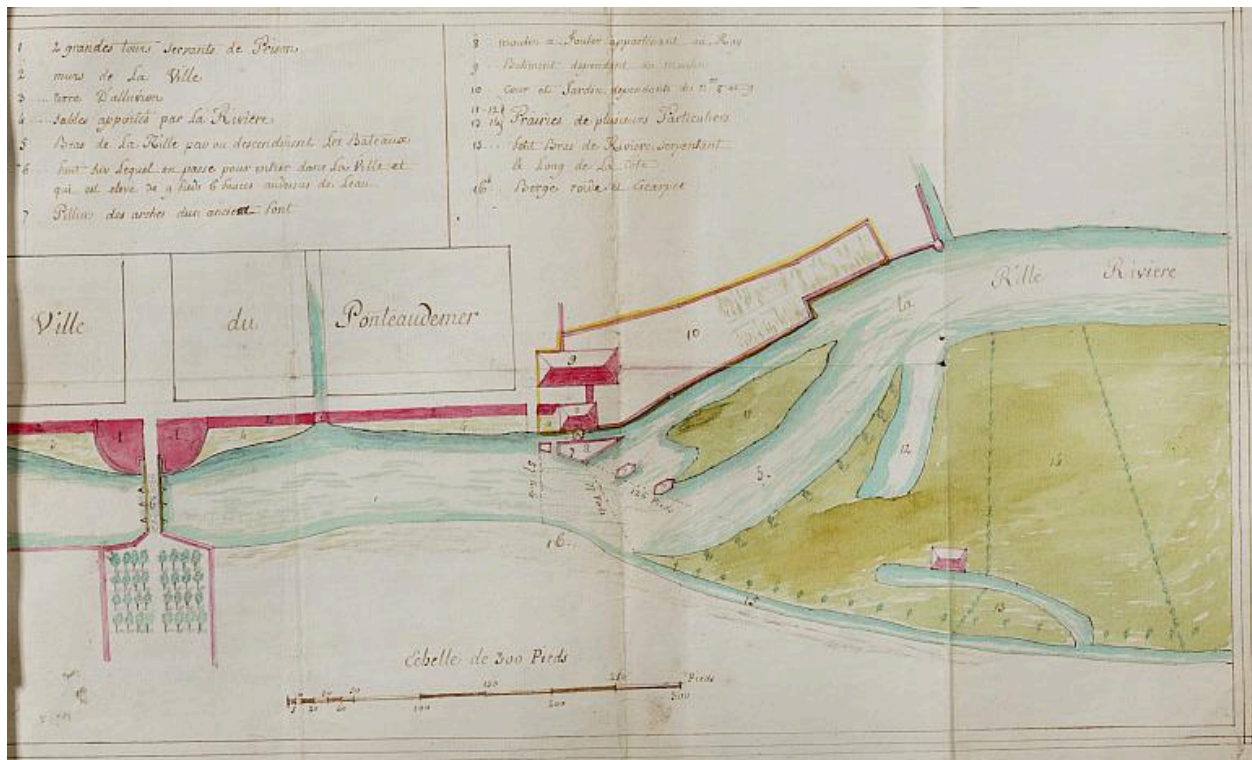 1 2 grandes tours servants de Prison
2 murs de La Ville
3 ... terre D'alluvion
4 ... sables apportés par la Riviere
5 Bras de La Rille par ou descendoient Les Bateaux
6 Pont sur Lequel on passe pour entrer dans La Ville et
qui est elevé de 9 pieds 6 pouces audessus de Leau
7 Pilliers des arches dun ancien Pont
8 moulin a Fouler appartenant au Roy
9 Batiment dependant du moulin
10 Cour et Jardin dependants du n.º 8 et 9
11-12
13 14 Prairies de plusieurs Particuliers
15 ... Petit Bras de Riviere serpentant
le Long de La Cote
16 Berge roide et Ecarpée
Ville du Ponteaudemer
la Rille Riviere
9
10
1 1
2
4 4
6
7
11
5
12
13
16
Echelle de 300 Pieds
50 150 250 Pieds
100 200 300